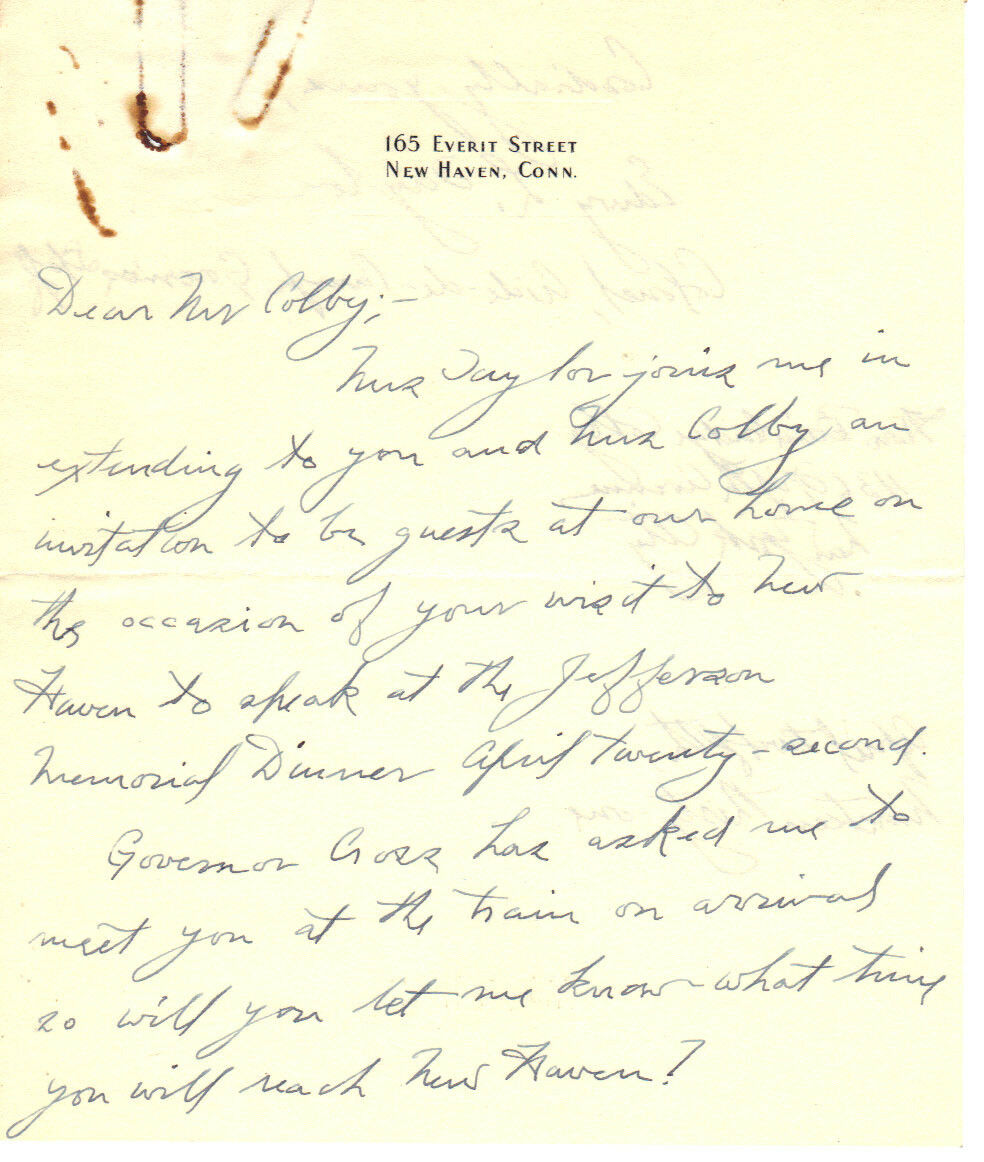 165 EVERIT STREET
NEW HAVEN, CONN.
Dear Mr Colby;-
Mrs Taylor joins me in
extending to you and Mrs Colby an
invitation to be guests at our home on
the occasion of your visit to New
Haven to speak at the Jefferson
Memorial Dinner April twenty-second.
Governor Cross has asked me to
meet you at the train on arrival
so will you let me know what time
you will reach New Haven?